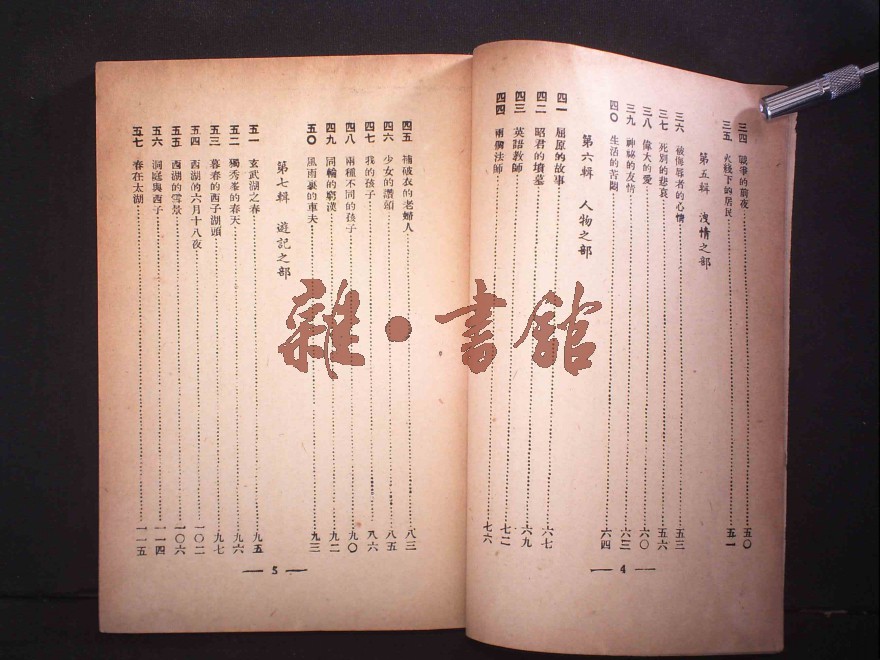 三四 戰爭的前夜 五〇
三五 火綫下的居民 五一
第五輯 洩情之部
三六 被侮辱者的心情 五三
三七 死別的悲哀 五六
三八 偉大的愛 六〇
三九 神祕的友情 六三
四〇 生活的苦悶 六四
第六輯 人物之部
四一 屈原的故事 六七
四二 昭君的墳墓 六九
四三 英語教師 七二
四四 兩個法師 七六
— 4 —
四五 補破衣的老婦人 八三
四六 少女的讚頌 八五
四七 我的孩子 八六
四八 兩種不同的孩子 九〇
四九 同輪的窮漢 九二
五〇 風雨裏的車夫 九三
第七輯 遊記之部
五一 玄武湖之春 九五
五二 獨秀峯的春天 九六
五三 暮春的西子湖頭 九七
五四 西湖的六月十八夜 一〇二
五五 西湖的雪景 一〇六
五六 洞庭與西子 一一四
五七 春在太湖 一一五
— 5 —
雜·書館